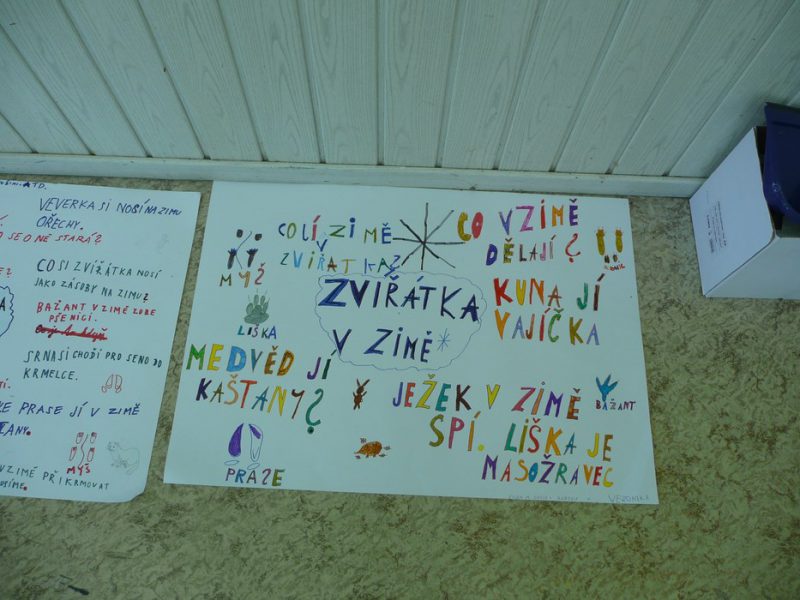 VEVERKA SI NOSÍ NA ZIMU
OŘECHY.
O SE O NĚ STARÁ?
CO SI ZVÍŘÁTKA NOSÍ
JAKO ZÁSOBY NA ZIMU?
BAŽANT V ZIMĚ ZOBE
PŠENICI.
SRNA SI CHODÍ PRO SENO DO
KRMELCE.
PRASE JÍ V ZIMĚ
MYŠ
V ZIMĚ PŘIKRMOVAT
CO JÍ ZIMĚ
V
ZVÍŘATKA?
MYŠ
LIŠKA
CO V ZIMĚ
DĚLAJÍ?
ZVÍŘÁTKA
V ZIMĚ
KUNA JÍ
VAJÍČKA
MEDVĚD JÍ
KAŠTANY?
JEŽEK V ZIMĚ
SPÍ. LIŠKA JE
MASOŽRAVEC
BAŽANT
PRASE
VERONIKA